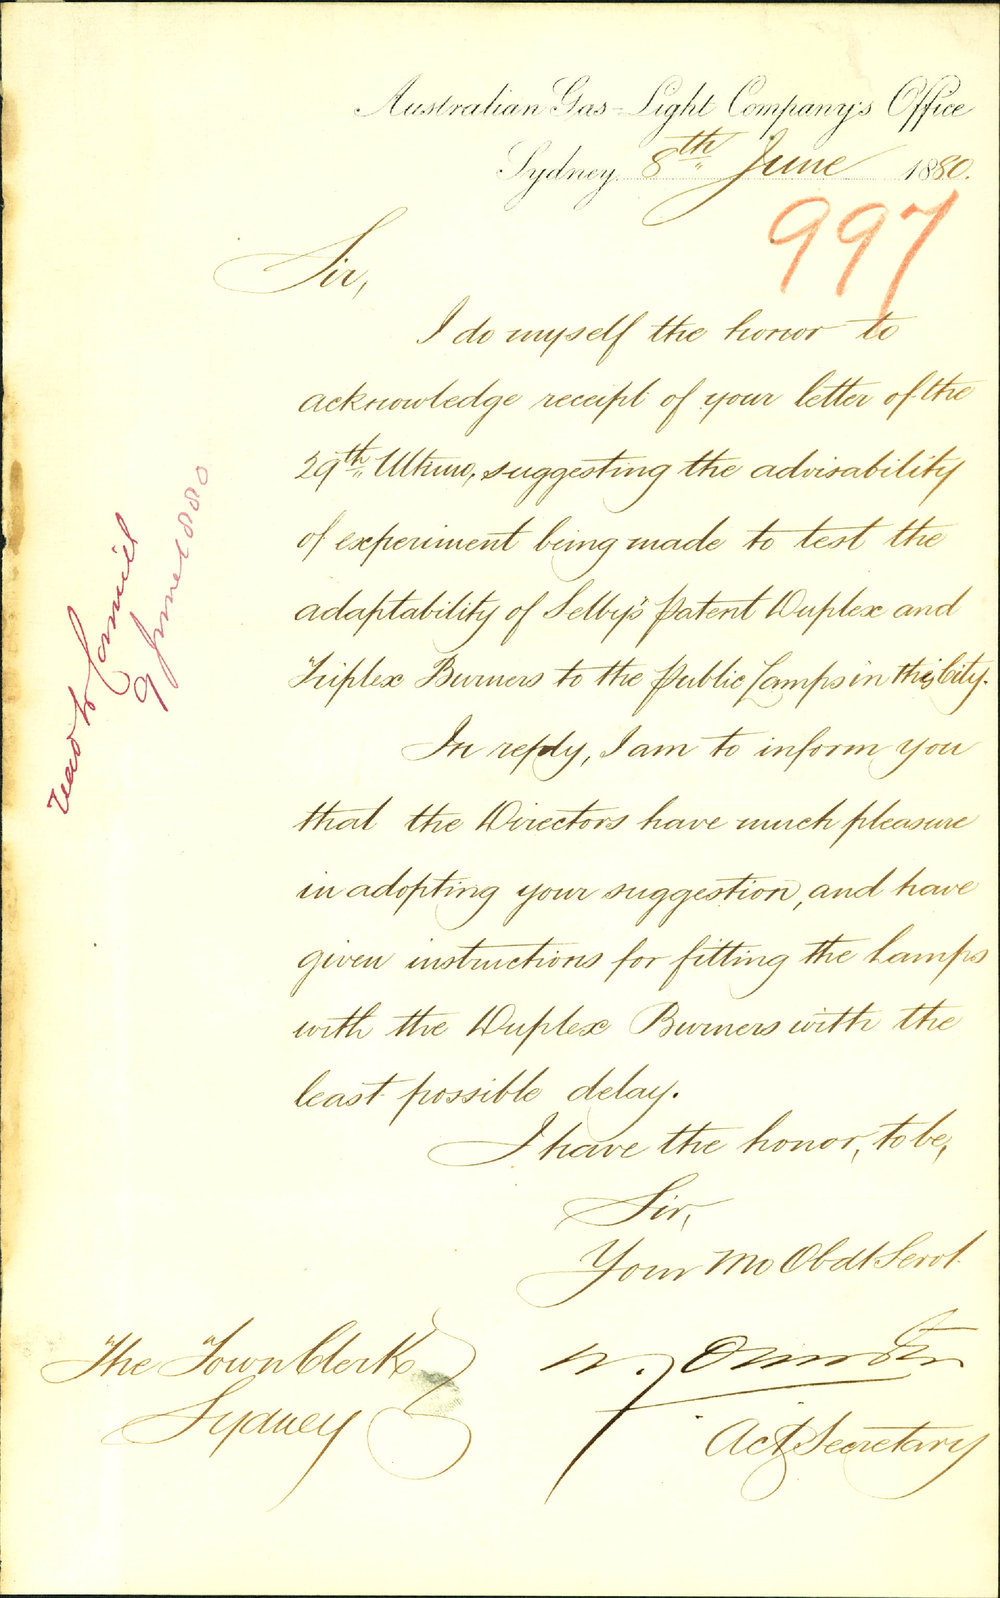 Australian Gas-Light Company's Office
Sydney, 8th June 1880.
997
Sir,
I do myself the honor to
acknowledge receipt of your letter of the
29th Ultimo, suggesting the advisability
of experiment being made to test the
adaptability of Selby's Patent Duplex and
Triplex Burners to the Public Lamps in this City.
In reply, I am to inform you
that the Directors have much pleasure
in adopting your suggestion, and have
given instructions for fitting the Lamps
with the Duplex Burners with the
least possible delay.
I have the honor, to be,
Sir,
Your Mo Obdt Servt
Act Secretary
The Town Clerk
Sydney
read to Council
9 June 1880